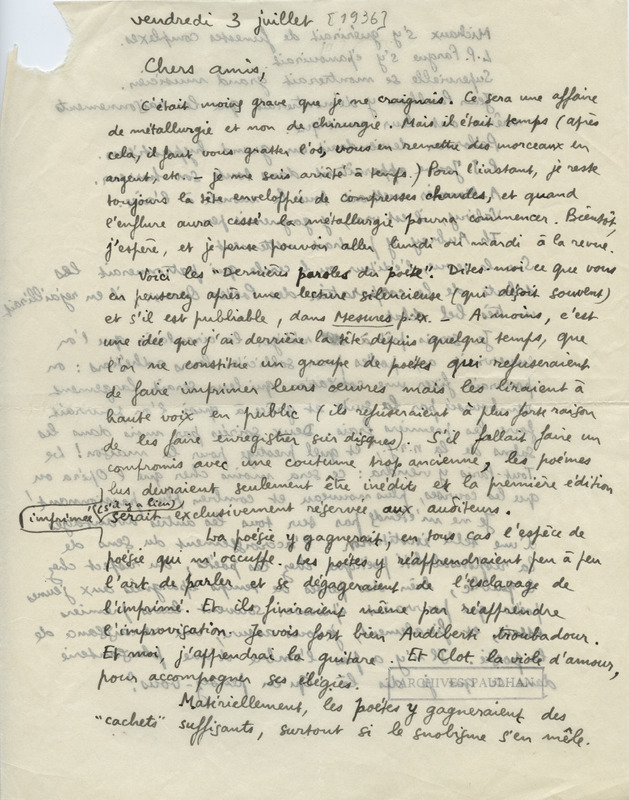 vendredi 3 juillet [1936]
Chers amis,
C'était moins grave que je ne craignais. Ce sera une affaire
de métallurgie et non de chirurgie. Mais il était temps (après
cela, il faut vous gratter l'os, vous en remettre des morceaux en
argent, etc. – je me suis arrêté à temps.) Pour l'instant, je reste
toujours la tête enveloppée de compresses chaudes, et quand
l'enflure aura cessé la métallurgie pourra commencer. Bientôt
j'espère, et je pense pouvoir aller lundi ou mardi à la revue.
Voici les "Dernières paroles du poète". Dites-moi ce que vous
en penserez après une lecture silencieuse (qui déçoit souvent)
et s'il est publiable, dans Mesures p. ex. – A moins, c'est
une idée que j'ai derrière la tête depuis quelque temps, que
l'on ne constitue un groupe de poètes qui refuseraient
de faire imprimer leurs oeuvres mais les liraient à
haute voix en public (ils refuseraient à plus forte raison
de les faire enregistrer sur disques). S'il fallait faire un
compromis avec une coutume trop ancienne, les poèmes
lus devraient seulement être inédits et la première édition
imprimée (s'il y a lieu) serait exclusivement réservée aux auditeurs.
La poésie y gagnerait, en tous cas l'espèce de
poésie qui m'occupe. Les poètes y réapprendraient peu à peu
l'art de parler et se dégageraient de l'esclavage de
l'imprimé. Et ils finiraient même par réapprendre
l'improvisation. Je vois fort bien Audiberti troubadour.
Et moi, j'apprendrai la guitare. Et Clot la viole d'amour,
pour accompagner ses élégies.
ARCHIVES PAULHAN
Matériellement, les poètes y gagneraient des
"cachets" suffisants, surtout si le snobisme s'en mêle.